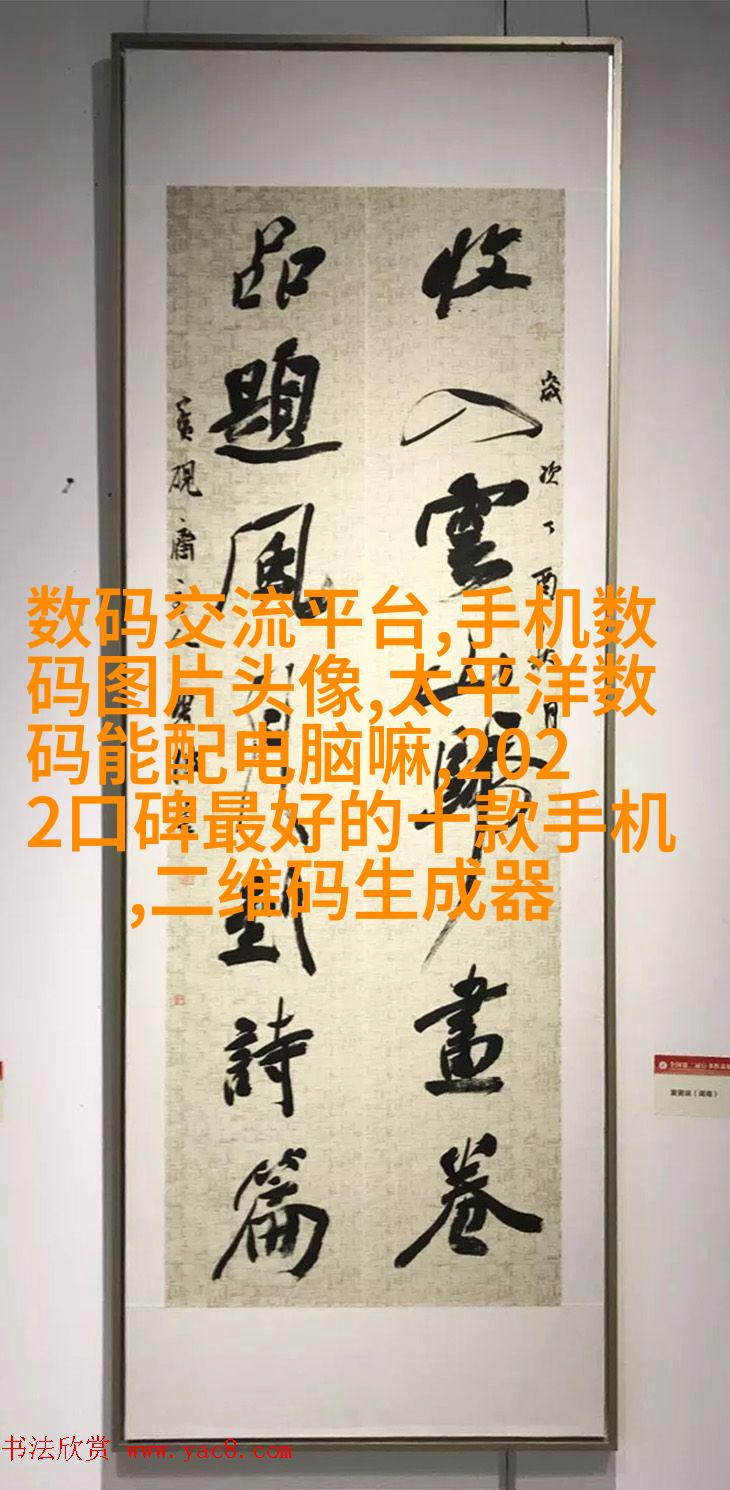 收入雲山歸畫卷
歲次丁酉
月
品題風月對詩篇
硯齋主人
数码交流平台,手机数
码图片头像,太平洋数
码能配电脑嘛,202
2口碑最好的十款手机
,二维码生成器
书法欣赏 www.yac8.com